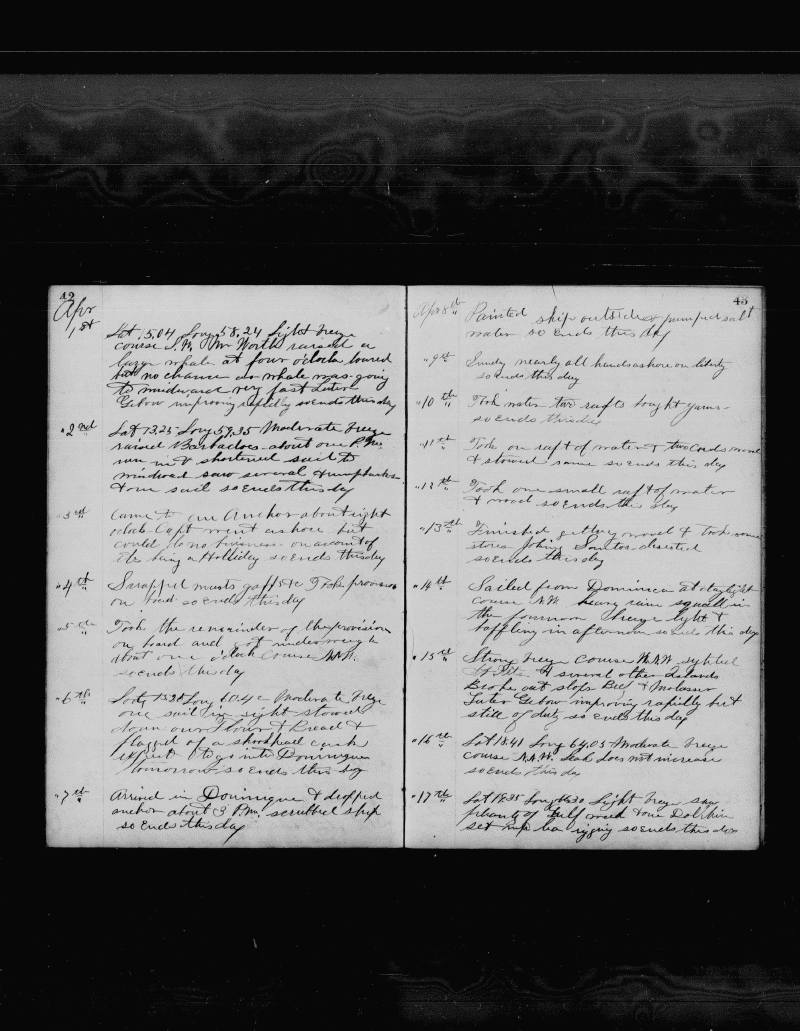 42
Apr
1st Lat 15.04 Long 58.24 Light breeze
course S.W. Wm Worth raised a
large whale at four o'clock lowered
but no chance as whale was going
to windward very fast Luter
Gebow improving rapidly so ends this day
" 2nd Lat 13.25 Long 59.35 Moderate breeze
raised Barbadoes about one P.M.
run in & shortened sail to
windward saw several humpbacks
& one sail so ends this day
" 3rd Came to our Anchor about eight
oclock Capt went ashore but
could do no business on account of
its being a Holliday so ends this day
" 4th Scrapped masts gaffs &c Took provision
on board so ends this day
" 5th Took the remainder of the provision
on board and got underweigh
about one o'clock Course N.N.
so ends this day
" 6th Long 60.4 Moderate breeze
one sail in sight stowed
down our Flour & Bread &
flagged of a cask
expect to go into Dominique
tomorrow so ends this day
" 7th Arrived in Dominique & dropped
anchor about 3 P.M. scrubbed ship
so ends this day
43
Apr 8th Painted ship outside & pumped salt
water so ends this day
" 9th Sunday nearly all hands ashore on liberty
so ends this day
" 10th Took water two rafts bought yams
so ends this day
" 11th Took on raft of water & two cords wood
& stowed same so ends this day
" 12th Took one small raft of water
& wood so ends this day
" 13th Finished getting wood & took some
stores John Santos deserted
so ends this day
" 14th Sailed from Dominica at daylight
course N.W. heavy rain squall in
the forenoon breeze light &
baffling in afternoon so ends this day
" 15th Strong breeze course W.N.W. sighted
St Kits & several other Islands
Broke out slops Beef & Molasses
Luter Gebow improving rapidly but
still of duty so ends this day
" 16th Lat 18.41 Long 64.05 Moderate breeze
course N.N.W. leak does not increase
so ends this day
" 17th Lat 19.35 Long Light breeze saw
plenty of Gulf weed & one Dolphin
set up rigging so ends this day